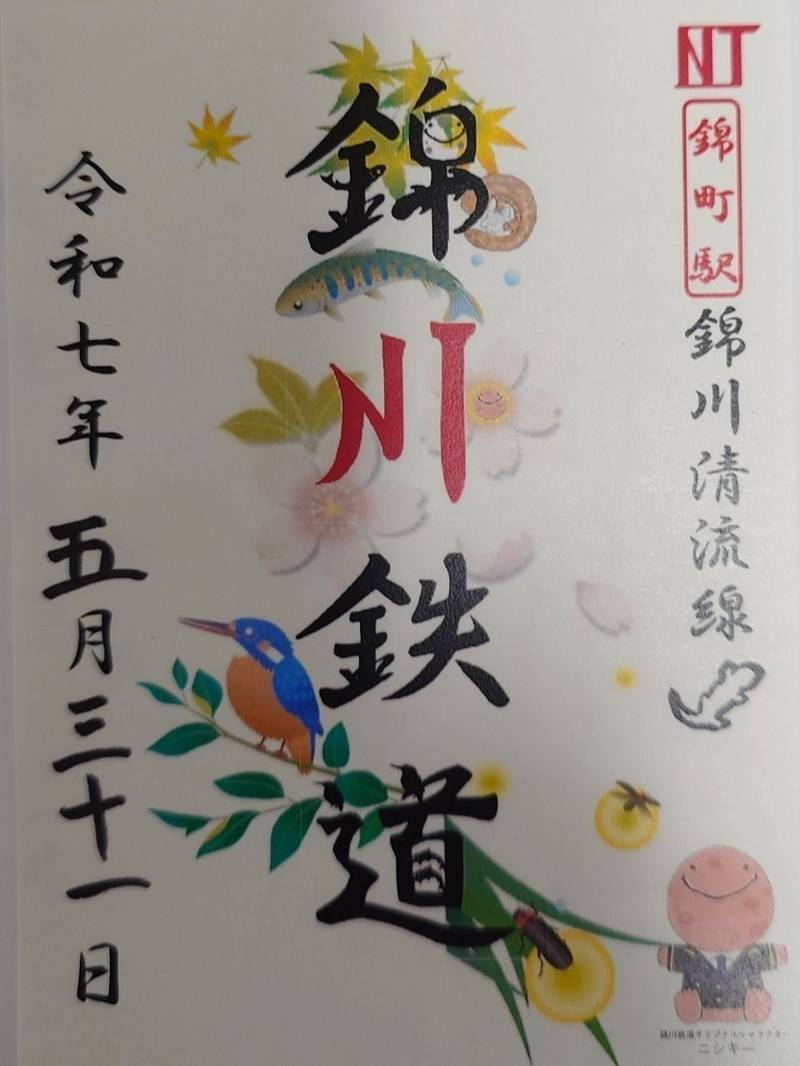 NT
錦町駅
錦川清流線
錦川鉄道
令和七年 五月三十一日
錦川鉄道オリジナルキャラクター
ニシキー